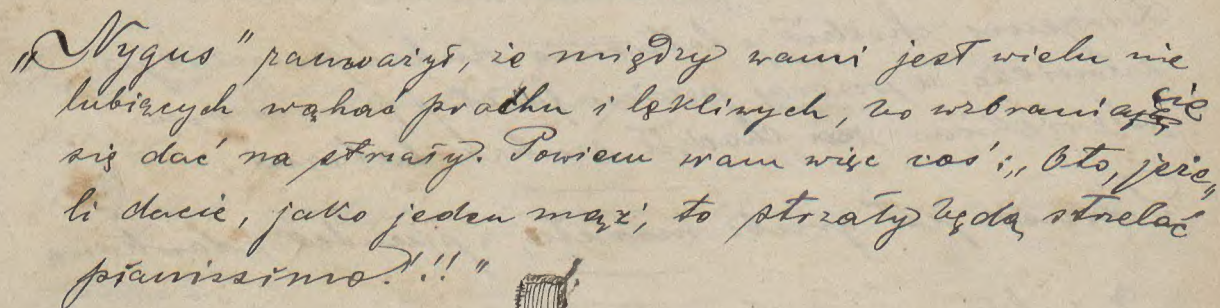 „Nygus” zauważył, że między wami jest wielu nie
lubiących wąhać prochu i lękliwych, co wzbraniacie
się dać na strzały. Powiem wam więc coś: „Oto, jeże„
li dacie, jako jeden mąż, to strzały będą strzelać
pianissimo!!!”